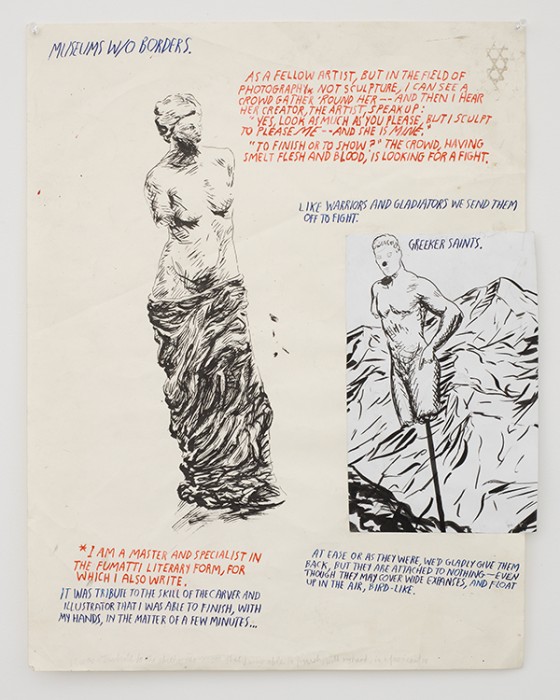 MUSEUMS W/O BORDERS.
AS A FELLOW ARTIST, BUT IN THE FIELD OF
PHOTOGRAPHY* NOT SCULPTURE, I CAN SEE A
CROWD GATHER 'ROUND HER -- AND THEN I HEAR
HER CREATOR, THE ARTIST, SPEAK UP:
"YES, LOOK AS MUCH AS YOU PLEASE, BUT I SCULPT
TO PLEASE ME -- AND SHE IS MINE."
"TO FINISH OR TO SHOW?" THE CROWD, HAVING
SMELT FLESH AND BLOOD, IS LOOKING FOR A FIGHT.
LIKE WARRIORS AND GLADIATORS WE SEND THEM
OFF TO FIGHT.
GREEKER SAINTS.
*I AM A MASTER AND SPECIALIST IN
THE FUMATTI LITERARY FORM, FOR
WHICH I ALSO WRITE.
IT WAS TRIBUTE TO THE SKILL OF THE CARVER AND
ILLUSTRATOR THAT I WAS ABLE TO FINISH, WITH
MY HANDS, IN THE MATTER OF A FEW MINUTES...
AT EASE OR AS THEY WERE, WE'D GLADLY GIVE THEM
BACK, BUT THEY ARE ATTACHED TO NOTHING -- EVEN
THOUGH THEY MAY COVER WIDE EXPANSES, AND FLOAT
UP IN THE AIR, BIRD-LIKE.